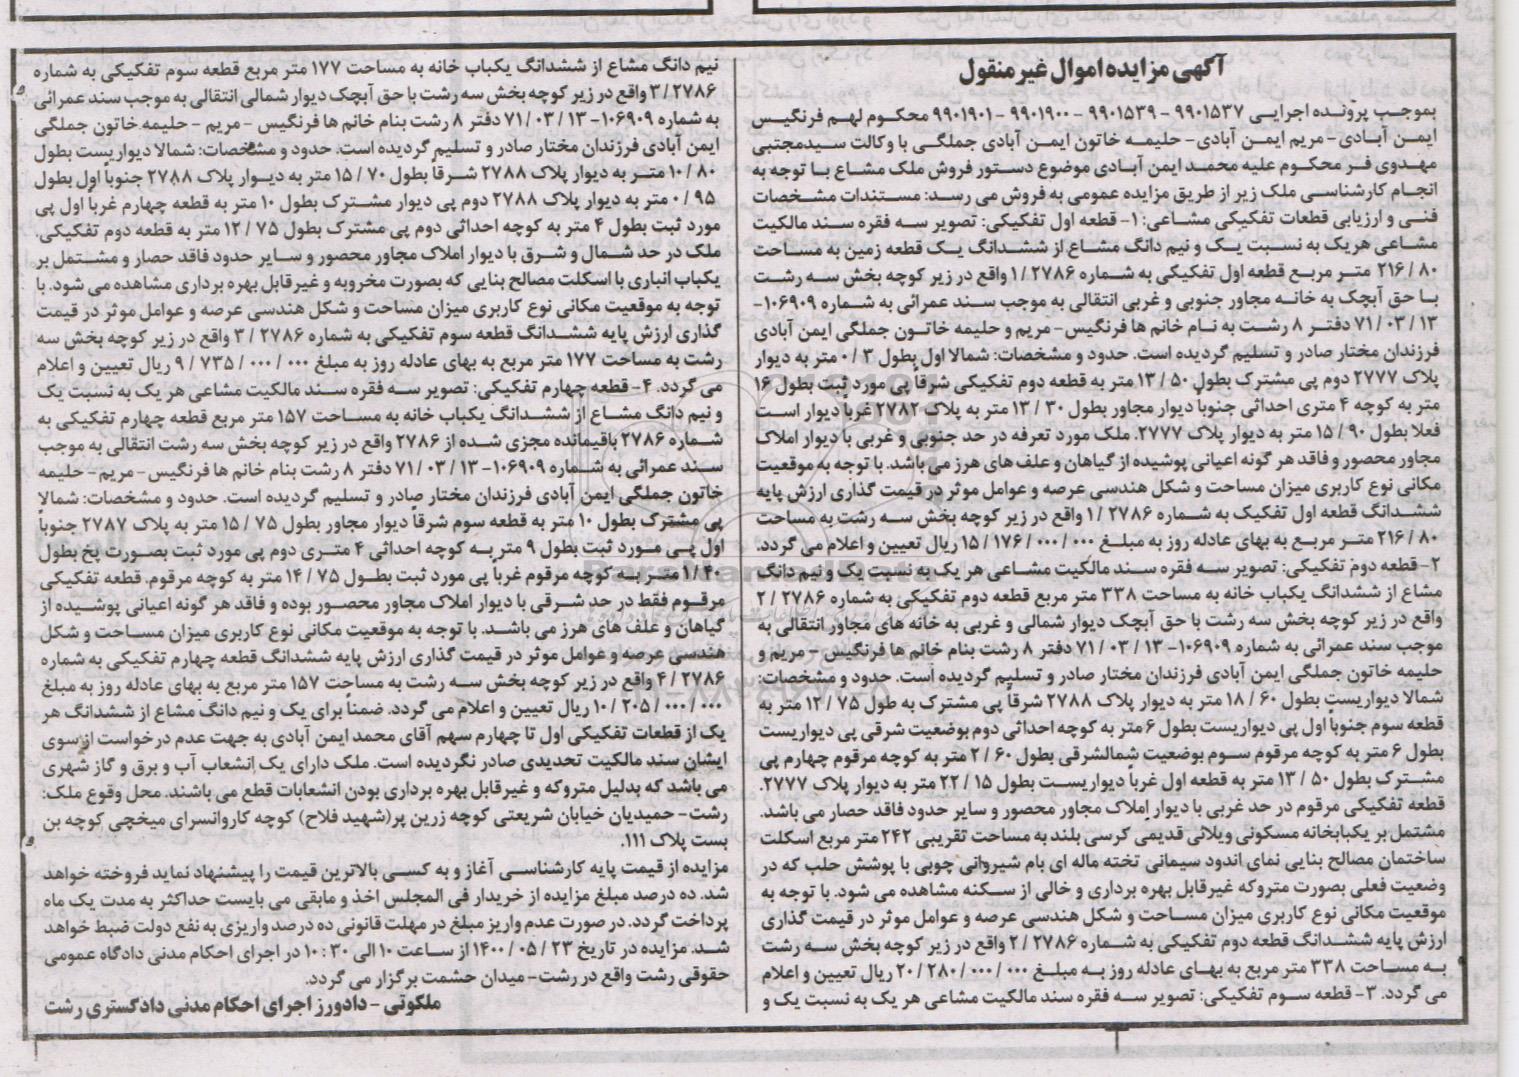 آگهی مزایده اموال غیر منقول
بموجب پرونده اجرایی ۹۹۰۱۵۳۷ - ۹۹۰۱۵۳۹ - ۹۹۰۱۹۰۰ - ۹۹۰۱۹۰۱ محکوم لهم فرنگیس
ایمن آبادی - مریم ایمن آبادی - حلیمه خاتون ایمن آبادی جملگی با وکالت سیدمجتبی
مهدوی فر محکوم علیه محمد ایمن آبادی موضوع دستور فروش ملک مشاع با توجه به
انجام کارشناسی ملک زیر از طریق مزایده عمومی به فروش می رسد: مستندات مشخصات
فنی و ارزیابی قطعات تفکیکی مشاعی: ۱- قطعه اول تفکیکی: تصویر سه فقره سند مالکیت
مشاعی هر یک به نسبت یک و نیم دانگ مشاع از ششدانگ یک قطعه زمین به مساحت
۸۰ / ۲۱۶ متر مربع قطعه اول تفکیکی به شماره ۲۷۸۶ / ۱ واقع در زیر کوچه بخش سه رشت
با حق آبچک به خانه مجاور جنوبی و غربی انتقالی به موجب سند عمرانی به شماره ۱۰۶۹۰۹-
۱۳ / ۰۳ / ۷۱ دفتر ۸ رشت به نام خانم ها فرنگیس - مریم و حلیمه خاتون جملگی ایمن آبادی
فرزندان مختار صادر و تسلیم گردیده است. حدود و مشخصات: شمالا اول بطول ۳ / ۰ متر به دیوار
پلاک ۲۷۷۷ دوم پی مشترک بطول ۵۰ / ۱۳ متر به قطعه دوم تفکیکی شرقاً پی مورد ثبت بطول ۱۶
متر به کوچه ۴ متری احداثی جنوباً دیوار مجاور بطول ۳۰ / ۱۳ متر به پلاک ۲۷۸۲ غرباً دیوار است
فعلا بطول ۹۰ / ۱۵ متر به دیوار پلاک ۲۷۷۷. ملک مورد تعرفه در حد جنوبی و غربی با دیوار املاک
مجاور محصور و فاقد هر گونه اعیانی پوشیده از گیاهان و علف های هرز می باشد. با توجه به موقعیت
مکانی نوع کاربری میزان مساحت و شکل هندسی عرصه و عوامل موثر در قیمت گذاری ارزش پایه
ششدانگ قطعه اول تفکیک به شماره ۲۷۸۶ / ۱ واقع در زیر کوچه بخش سه رشت به مساحت
۸۰ / ۲۱۶ متر مربع به بهای عادله روز به مبلغ ۰۰۰ / ۰۰۰ / ۱۷۶ / ۱۵ ریال تعیین و اعلام می گردد.
۲- قطعه دوم تفکیکی: تصویر سه فقره سند مالکیت مشاعی هر یک به نسبت یک و نیم دانگ
مشاع از ششدانگ یکباب خانه به مساحت ۳۳۸ متر مربع قطعه دوم تفکیکی به شماره ۲۷۸۶ / ۲
واقع در زیر کوچه بخش سه رشت با حق آبچک دیوار شمالی و غربی به خانه های مجاور انتقالی به
موجب سند عمرانی به شماره ۱۰۶۹۰۹- ۱۳ / ۰۳ / ۷۱ دفتر ۸ رشت بنام خانم ها فرنگیس - مریم و
حلیمه خاتون جملگی ایمن آبادی فرزندان مختار صادر و تسلیم گردیده است. حدود و مشخصات:
شمالا دیواریست بطول ۶۰ / ۱۸ متر به دیوار پلاک ۲۷۸۸ شرقاً پی مشترک به طول ۷۵ / ۱۲ متر به
قطعه سوم جنوباً اول پی دیواریست بطول ۶ متر به کوچه احداثی دوم بوضعیت شرقی پی دیواریست
بطول ۶ متر به کوچه مرقوم سوم بوضعیت شمالشرقی بطول ۶۰ / ۲ متر به کوچه مرقوم چهارم پی
مشترک بطول ۵۰ / ۱۳ متر به قطعه اول غرباً دیواریست بطول ۱۵ / ۲۲ متر به دیوار پلاک ۲۷۷۷.
قطعه تفکیکی مرقوم در حد غربی با دیوار املاک مجاور محصور و سایر حدود فاقد حصار می باشد.
مشتمل بر یکبابخانه مسکونی ویلائی قدیمی کرسی بلند به مساحت تقریبی ۲۴۲ متر مربع اسکلت
ساختمان مصالح بنایی نمای اندود سیمانی تخته ماله ای بام شیروانی چوبی با پوشش حلب که در
وضعیت فعلی بصورت متروکه غیرقابل بهره برداری و خالی از سکنه مشاهده می شود. با توجه به
موقعیت مکانی نوع کاربری میزان مساحت و شکل هندسی عرصه و عوامل موثر در قیمت گذاری
ارزش پایه ششدانگ قطعه دوم تفکیکی به شماره ۲۷۸۶ / ۲ واقع در زیر کوچه بخش سه رشت
به مساحت ۳۳۸ متر مربع به بهای عادله روز به مبلغ ۰۰۰ / ۰۰۰ / ۲۸۰ / ۲۰ ریال تعیین و اعلام
می گردد. ۳- قطعه سوم تفکیکی: تصویر سه فقره سند مالکیت مشاعی هر یک به نسبت یک و
نیم دانگ مشاع از ششدانگ یکباب خانه به مساحت ۱۷۷ متر مربع قطعه سوم تفکیکی به شماره
۲۷۸۶ / ۳ واقع در زیر کوچه بخش سه رشت با حق آبچک دیوار شمالی انتقالی به موجب سند عمرانی
به شماره ۱۰۶۹۰۹- ۱۳ / ۰۳ / ۷۱ دفتر ۸ رشت بنام خانم ها فرنگیس - مریم - حلیمه خاتون جملگی
ایمن آبادی فرزندان مختار صادر و تسلیم گردیده است. حدود و مشخصات: شمالا دیواریست بطول
۸۰ / ۱۰ متر به دیوار پلاک ۲۷۸۸ شرقاً بطول ۷۰ / ۱۵ متر به دیوار پلاک ۲۷۸۸ جنوباً اول بطول
۹۵ / ۰ متر به دیوار پلاک ۲۷۸۸ دوم پی دیوار مشترک بطول ۱۰ متر به قطعه چهارم غرباً اول پی
مورد ثبت بطول ۴ متر به کوچه احداثی دوم پی مشترک بطول ۷۵ / ۱۲ متر به قطعه دوم تفکیکی.
ملک در حد شمال و شرق با دیوار املاک مجاور محصور و سایر حدود فاقد حصار و مشتمل بر
یکباب انباری با اسکلت مصالح بنایی که بصورت مخروبه و غیرقابل بهره برداری مشاهده می شود. با
توجه به موقعیت مکانی نوع کاربری میزان مساحت و شکل هندسی عرصه و عوامل موثر در قیمت
گذاری ارزش پایه ششدانگ قطعه سوم تفکیکی به شماره ۲۷۸۶ / ۳ واقع در زیر کوچه بخش سه
رشت به مساحت ۱۷۷ متر مربع به بهای عادله روز به مبلغ ۰۰۰ / ۰۰۰ / ۷۳۵ / ۹ ریال تعیین و اعلام
می گردد. ۴- قطعه چهارم تفکیکی: تصویر سه فقره سند مالکیت مشاعی هر یک به نسبت یک
و نیم دانگ مشاع از ششدانگ یکباب خانه به مساحت ۱۵۷ متر مربع قطعه چهارم تفکیکی به
شماره ۲۷۸۶ باقیمانده مجزی شده از ۲۷۸۶ واقع در زیر کوچه بخش سه رشت انتقالی به موجب
سند عمرانی به شماره ۱۰۶۹۰۹- ۱۳ / ۰۳ / ۷۱ دفتر ۸ رشت بنام خانم ها فرنگیس - مریم - حلیمه
خاتون جملگی ایمن آبادی فرزندان مختار صادر و تسلیم گردیده است. حدود و مشخصات: شمالا
پی مشترک بطول ۱۰ متر به قطعه سوم شرقاً دیوار مجاور بطول ۷۵ / ۱۵ متر به پلاک ۲۷۸۷ جنوباً
اول پی مورد ثبت بطول ۹ متر به کوچه احداثی ۴ متری دوم پی مورد ثبت بصورت پخ بطول
۴۰ / ۱ متر به کوچه مرقوم غرباً پی مورد ثبت بطول ۷۵ / ۱۴ متر به کوچه مرقوم. قطعه تفکیکی
مرقوم فقط در حد شرقی با دیوار املاک مجاور محصور بوده و فاقد هر گونه اعیانی پوشیده از
گیاهان و علف های هرز می باشد. با توجه به موقعیت مکانی نوع کاربری میزان مساحت و شکل
هندسی عرصه و عوامل موثر در قیمت گذاری ارزش پایه ششدانگ قطعه چهارم تفکیکی به شماره
۲۷۸۶ / ۴ واقع در زیر کوچه بخش سه رشت به مساحت ۱۵۷ متر مربع به بهای عادله روز به مبلغ
۰۰۰ / ۰۰۰ / ۲۰۵ / ۱۰ ریال تعیین و اعلام می گردد. ضمناً برای یک و نیم دانگ مشاع از ششدانگ هر
یک از قطعات تفکیکی اول تا چهارم سهم آقای محمد ایمن آبادی به جهت عدم درخواست از سوی
ایشان سند مالکیت تحدیدی صادر نگردیده است. ملک دارای یک انشعاب آب و برق و گاز شهری
می باشد که بدلیل متروکه و غیرقابل بهره برداری بودن انشعابات قطع می باشند. محل وقوع ملک:
رشت - حمیدیان خیابان شریعتی کوچه زرین پر(شهید فلاح) کوچه کاروانسرای میخچی کوچه بن
بست پلاک ۱۱۱.
مزایده از قیمت پایه کارشناسی آغاز و به کسی بالاترین قیمت را پیشنهاد نماید فروخته خواهد
شد. ده درصد مبلغ مزایده از خریدار فی المجلس اخذ و مابقی می بایست حداکثر به مدت یک ماه
پرداخت گردد. در صورت عدم واریز مبلغ در مهلت قانونی ده درصد واریزی به نفع دولت ضبط خواهد
شد. مزایده در تاریخ ۲۳ / ۰۵ / ۱۴۰۰ از ساعت ۱۰ الی ۳۰ : ۱۰ در اجرای احکام مدنی دادگاه عمومی
حقوقی رشت واقع در رشت - میدان حشمت برگزار می گردد.
ملکوتی - دادورز اجرای احکام مدنی دادگستری رشت